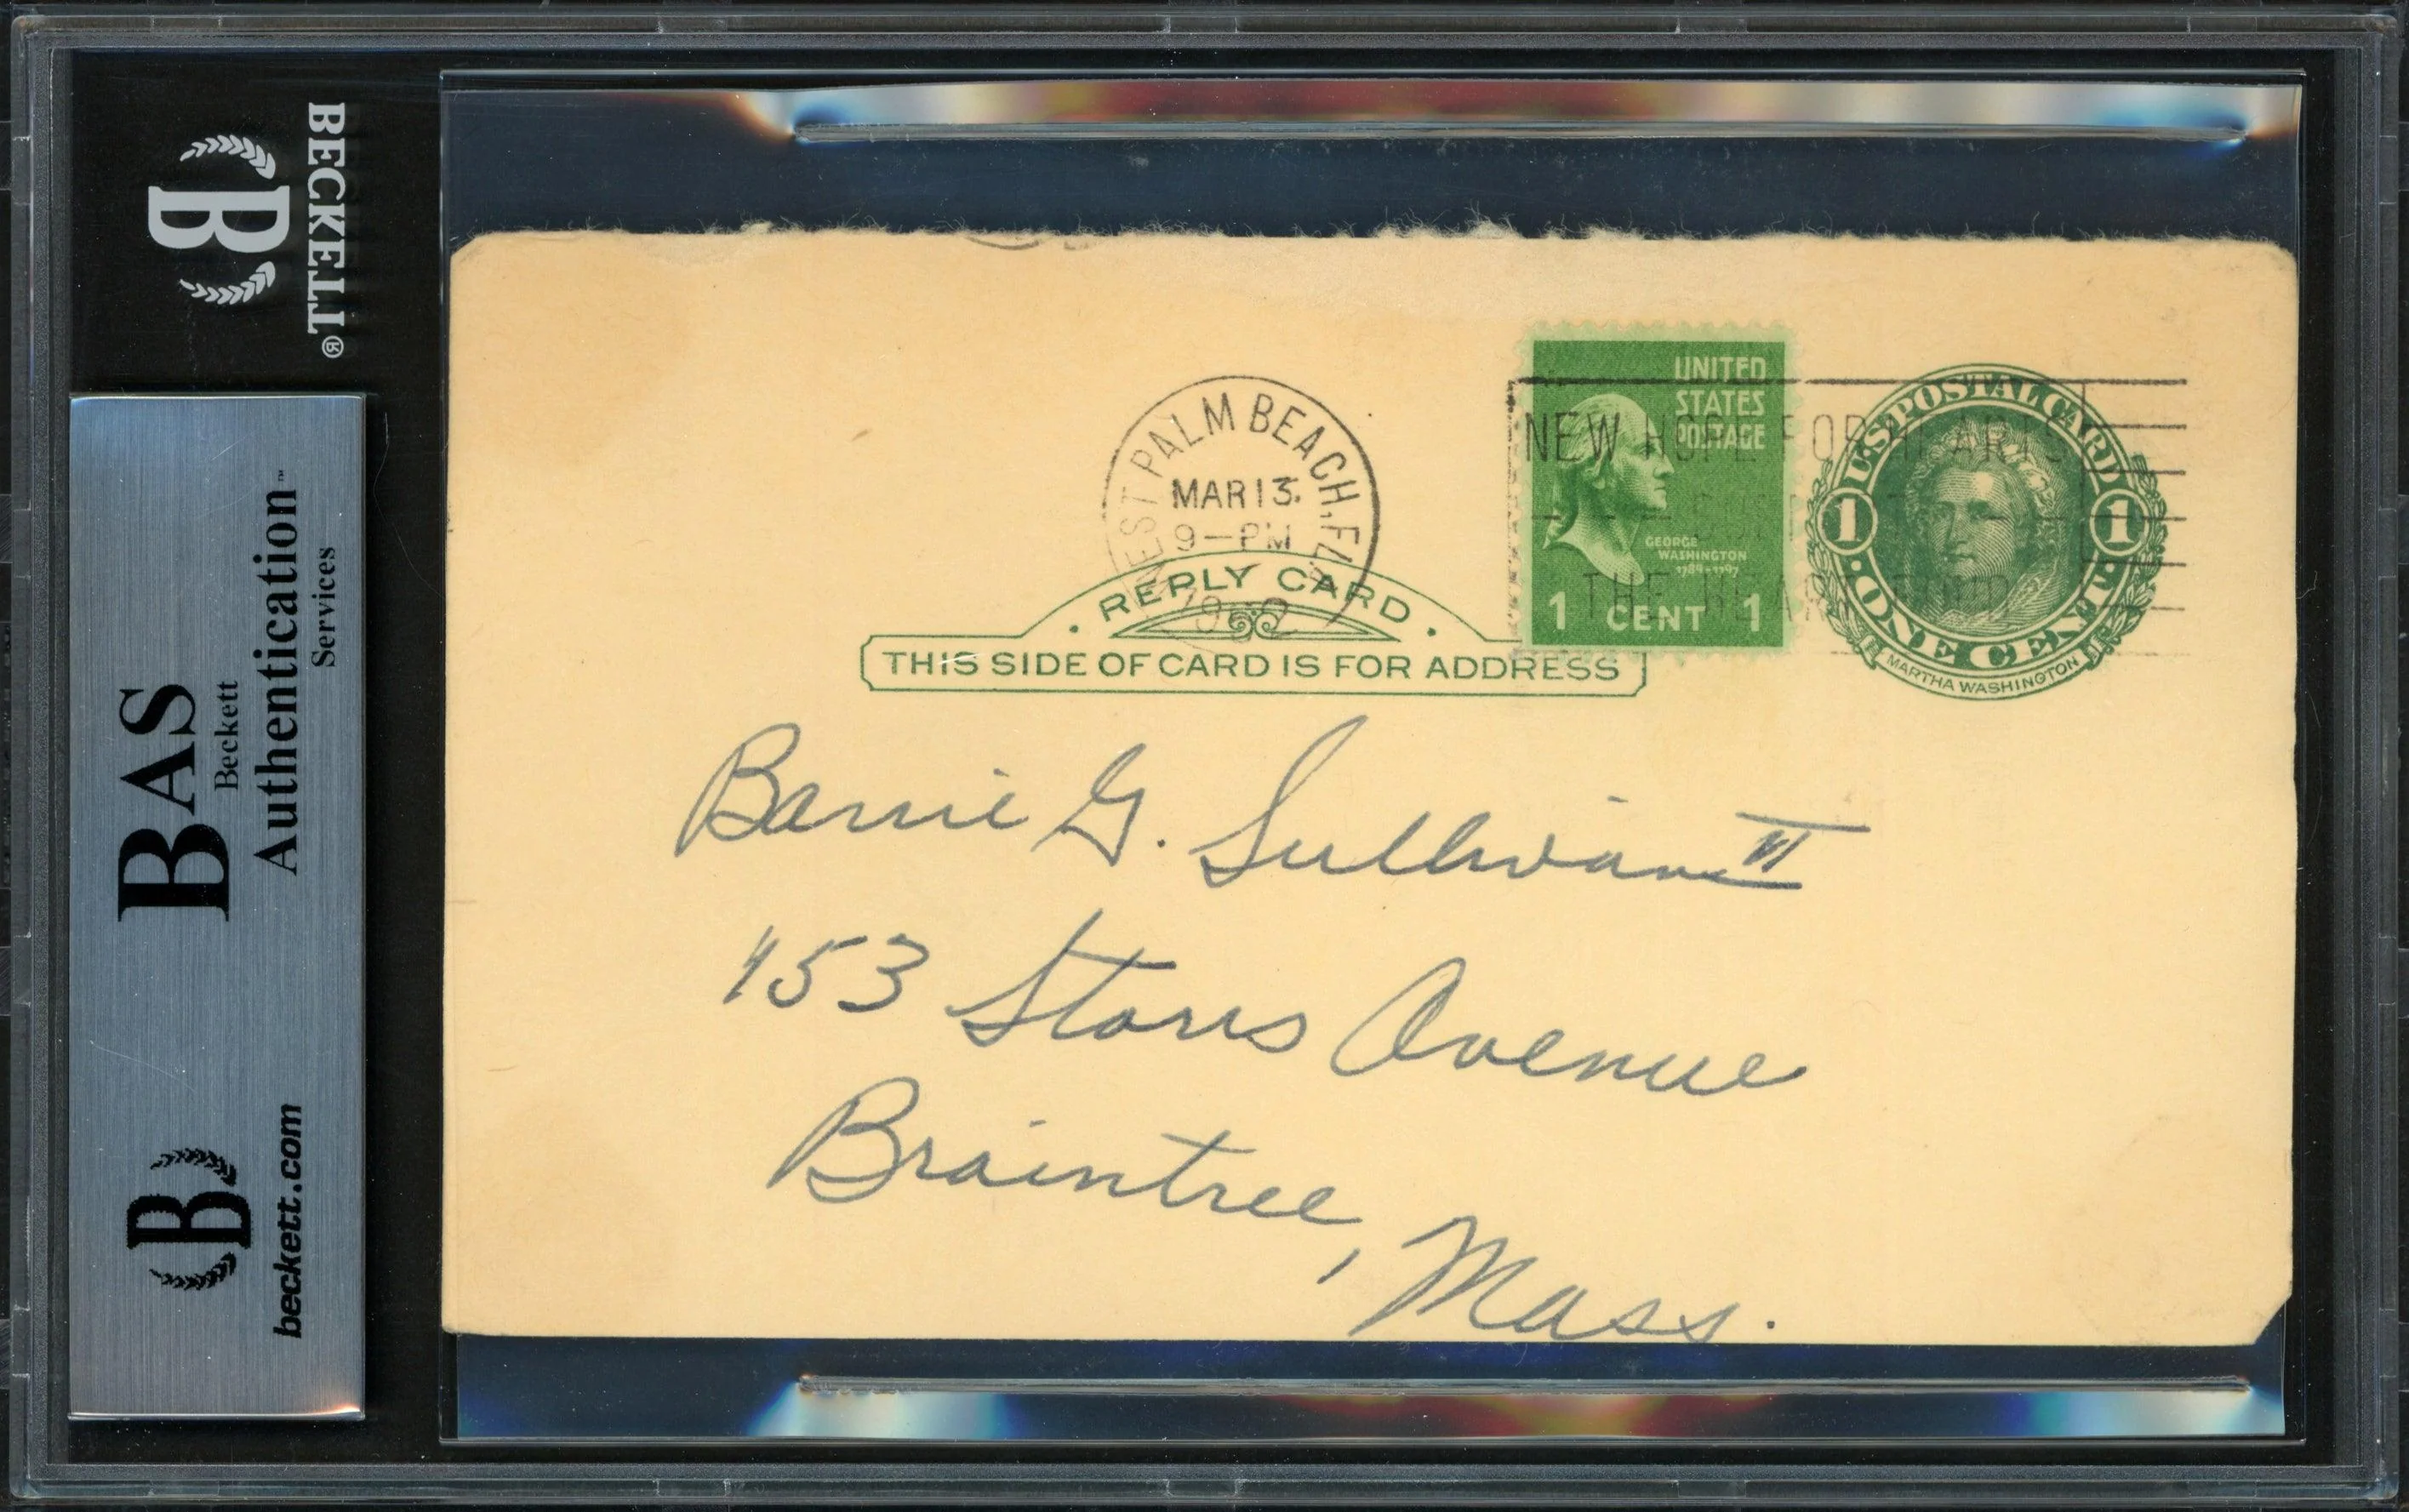 BECKETT®
B
BAS
Beckett
Authentication™
Services
B
beckett.com
WEST PALM BEACH, FLA.
MAR 13
9—PM
1952
NEW HOPE FOR HEARTS
THE HEART FUND
UNITED
STATES
POSTAGE
GEORGE
WASHINGTON
1789-1797
1 CENT 1
U.S. POSTAL CARD
1 1
·ONE CENT·
MARTHA WASHINGTON
· REPLY CARD ·
THIS SIDE OF CARD IS FOR ADDRESS
Barrie G. Sullivan II
153 Storrs Avenue
Braintree, Mass.